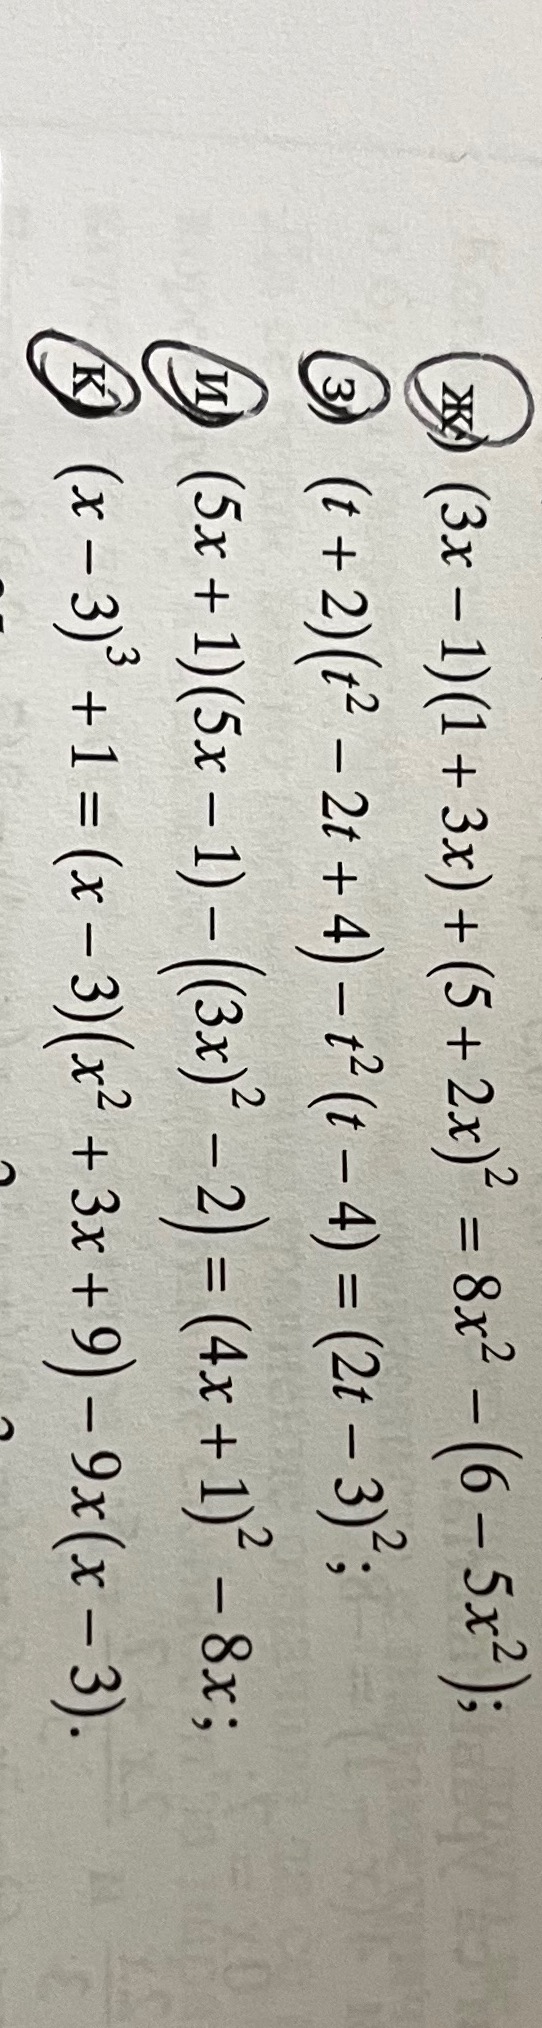 ж) (3x − 1)(1 + 3x) + (5 + 2x)² = 8x² − (6 − 5x²);
з) (t + 2)(t² − 2t + 4) − t²(t − 4) = (2t − 3)²;
и) (5x + 1)(5x − 1) − ((3x)² − 2) = (4x + 1)² − 8x;
к) (x − 3)³ + 1 = (x − 3)(x² + 3x + 9) − 9x(x − 3).